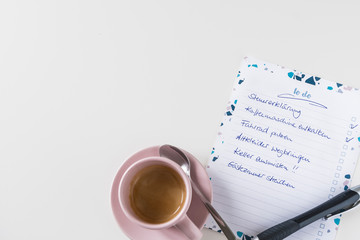 to do
Steuererklärung
Kaffeemaschine entkalken
Fahrrad putzen
Altkleider wegbringen
Keller ausmisten !!
Gästezimmer streichen